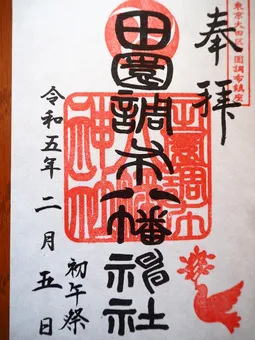 東京大田区田園調布鎮座
奉拝
田園調布八幡神社
初午祭
令和五年二月五日